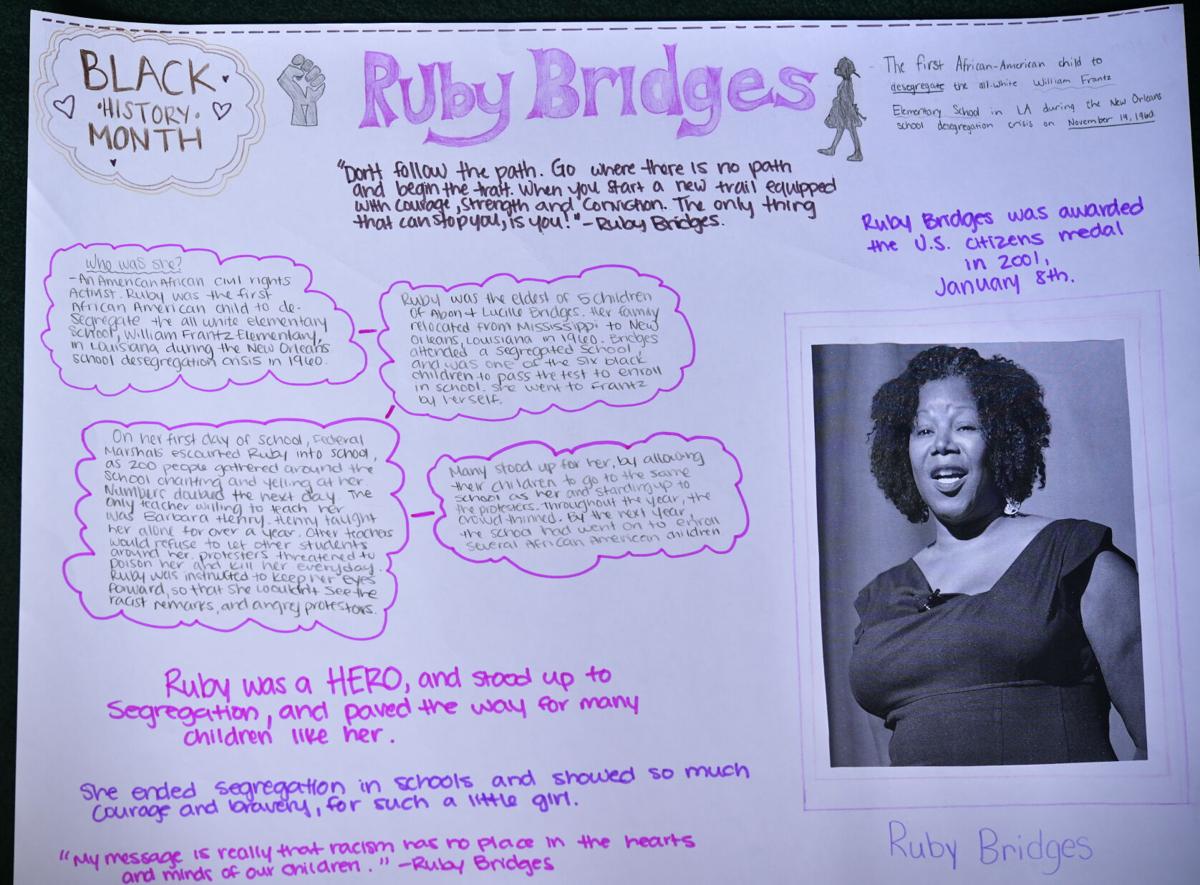 BLACK
·HISTORY·
MONTH
Ruby Bridges
- The first African-American child to
desegregate the all-white William Frantz
Elementary School in LA during the New Orleans
school desegregation crisis on November 14, 1960
"Don't follow the path. Go where there is no path
and begin the trail. When you start a new trail equipped
with courage, strength and conviction. The only thing
that can stop you, is you!" - Ruby Bridges.
Ruby Bridges was awarded
the U.S. citizens medal
in 2001,
January 8th.
Who was she?
- An American African civil rights
Activist. Ruby was the first
African American child to de-
segregate the all white elementary
School, William Frantz Elementary,
in Louisiana, during the New Orleans
school desegregation crisis in 1960.
Ruby was the eldest of 5 children
Of Abon + Lucille Bridges. Her family
relocated from Mississippi to New
Orleans, Louisiana in 1960. Bridges
attended a segregated school
and was one of the six black
children to pass the test to enroll
in school. She went to Frantz
by herself.
On her first day of school, Federal
Marshals escourted Ruby into school,
as 200 people gathered around the
school chanting and yelling at her.
Numbers doubled the next day. The
only teacher willing to teach her
was Barbara Henry. Henry taught
her alone for over a year. Other teachers
would refuse to let other students
around her. protesters threatened to
poison her and kill her everyday.
Ruby was instructed to keep her eyes
forward, so that she wouldn't see the
racist remarks, and angry protestors.
Many stood up for her, by allowing
their children to go to the same
school as her and standing up to
the protesters. Throughout the year, the
crowd thinned. By the next year,
the school had went on to enroll
several African American children
Ruby was a HERO, and stood up to
Segregation, and paved the way for many
children like her.
She ended segregation in schools and showed so much
courage and bravery, for such a little girl.
"My message is really that racism has no place in the hearts
and minds of our children." - Ruby Bridges
Ruby Bridges